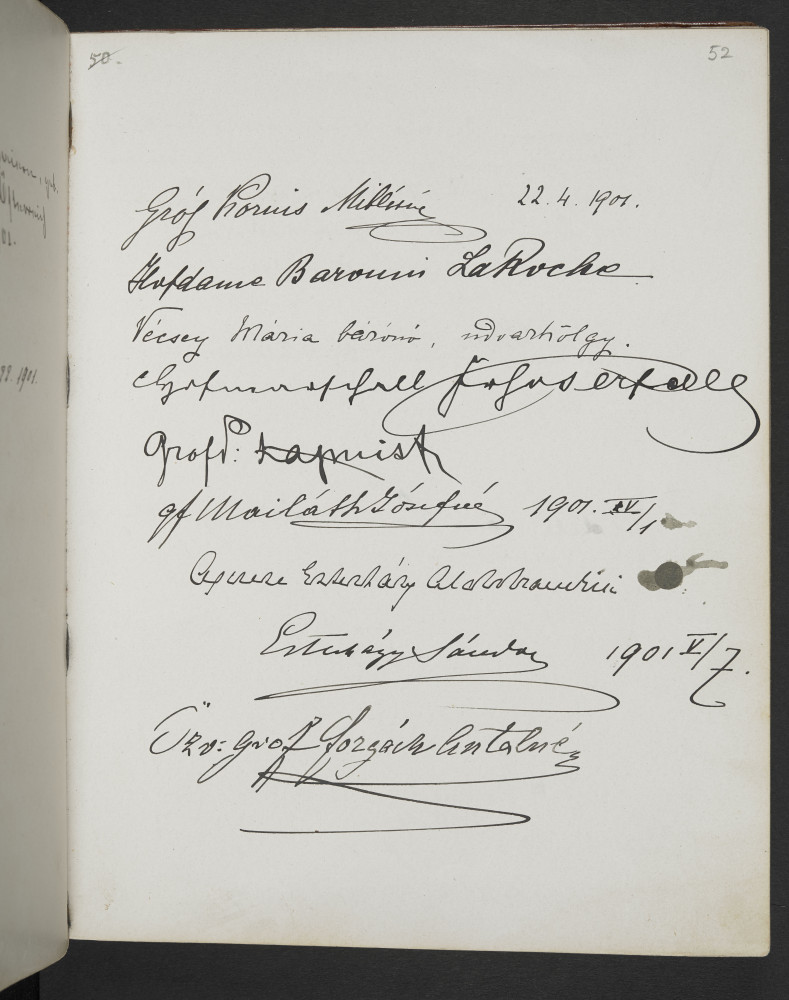 50.
52
Gróf Kornis Miklósné 22.4.1901.
Hofdame Baronin LaRoche
Vécsey Mária bárónő, udvarhölgy.
Hofmarschall
Grof
gf Mailáth Józsefné 1901. IV/1
Eszterházy
Esterházy Sándor 1901 V/7.
Özv: gróf Forgách Antalné